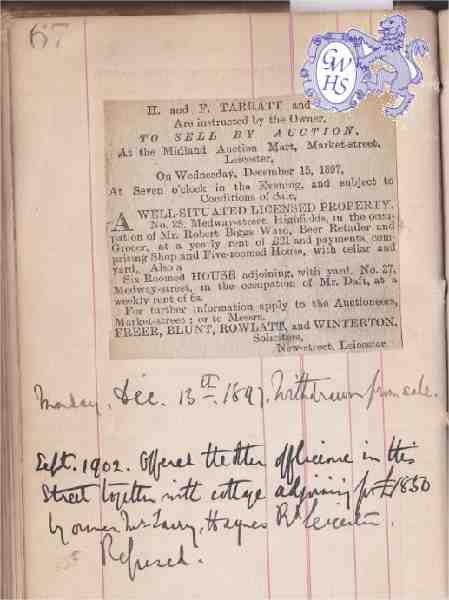 67
GWHS
H. and F. TARRATT and
Are instructed by the Owner,
TO SELL BY AUCTION,
At the Midland Auction Mart, Market-street,
Leicester,
On Wednesday, December 15, 1897,
At Seven o'clock in the Evening, and subject to
Conditions of Sale,
A WELL-SITUATED LICENSED PROPERTY,
No. 25, Medway-street, Highfields, in the occu-
pation of Mr. Robert Biggs Ward, Beer Retailer and
Grocer, at a yearly rent of £21 and payments, com-
prising Shop and Five-roomed House, with cellar and
yard. Also a
Six Roomed HOUSE adjoining, with yard, No. 27,
Medway-street, in the occupation of Mr. Daft, at a
weekly rent of 6s.
For further information apply to the Auctioneers,
Market-street; or to Messrs.
FREER, BLUNT, ROWLATT, and WINTERTON,
Solicitors,
New-street, Leicester.
Monday, Dec. 13th. 1897. Withdrawn from sale.
Sept. 1902. Offered the other off licence in this
Street together with cottage adjoining for £1850
by owner Mr Haynes Rd Leicester.
Refused.